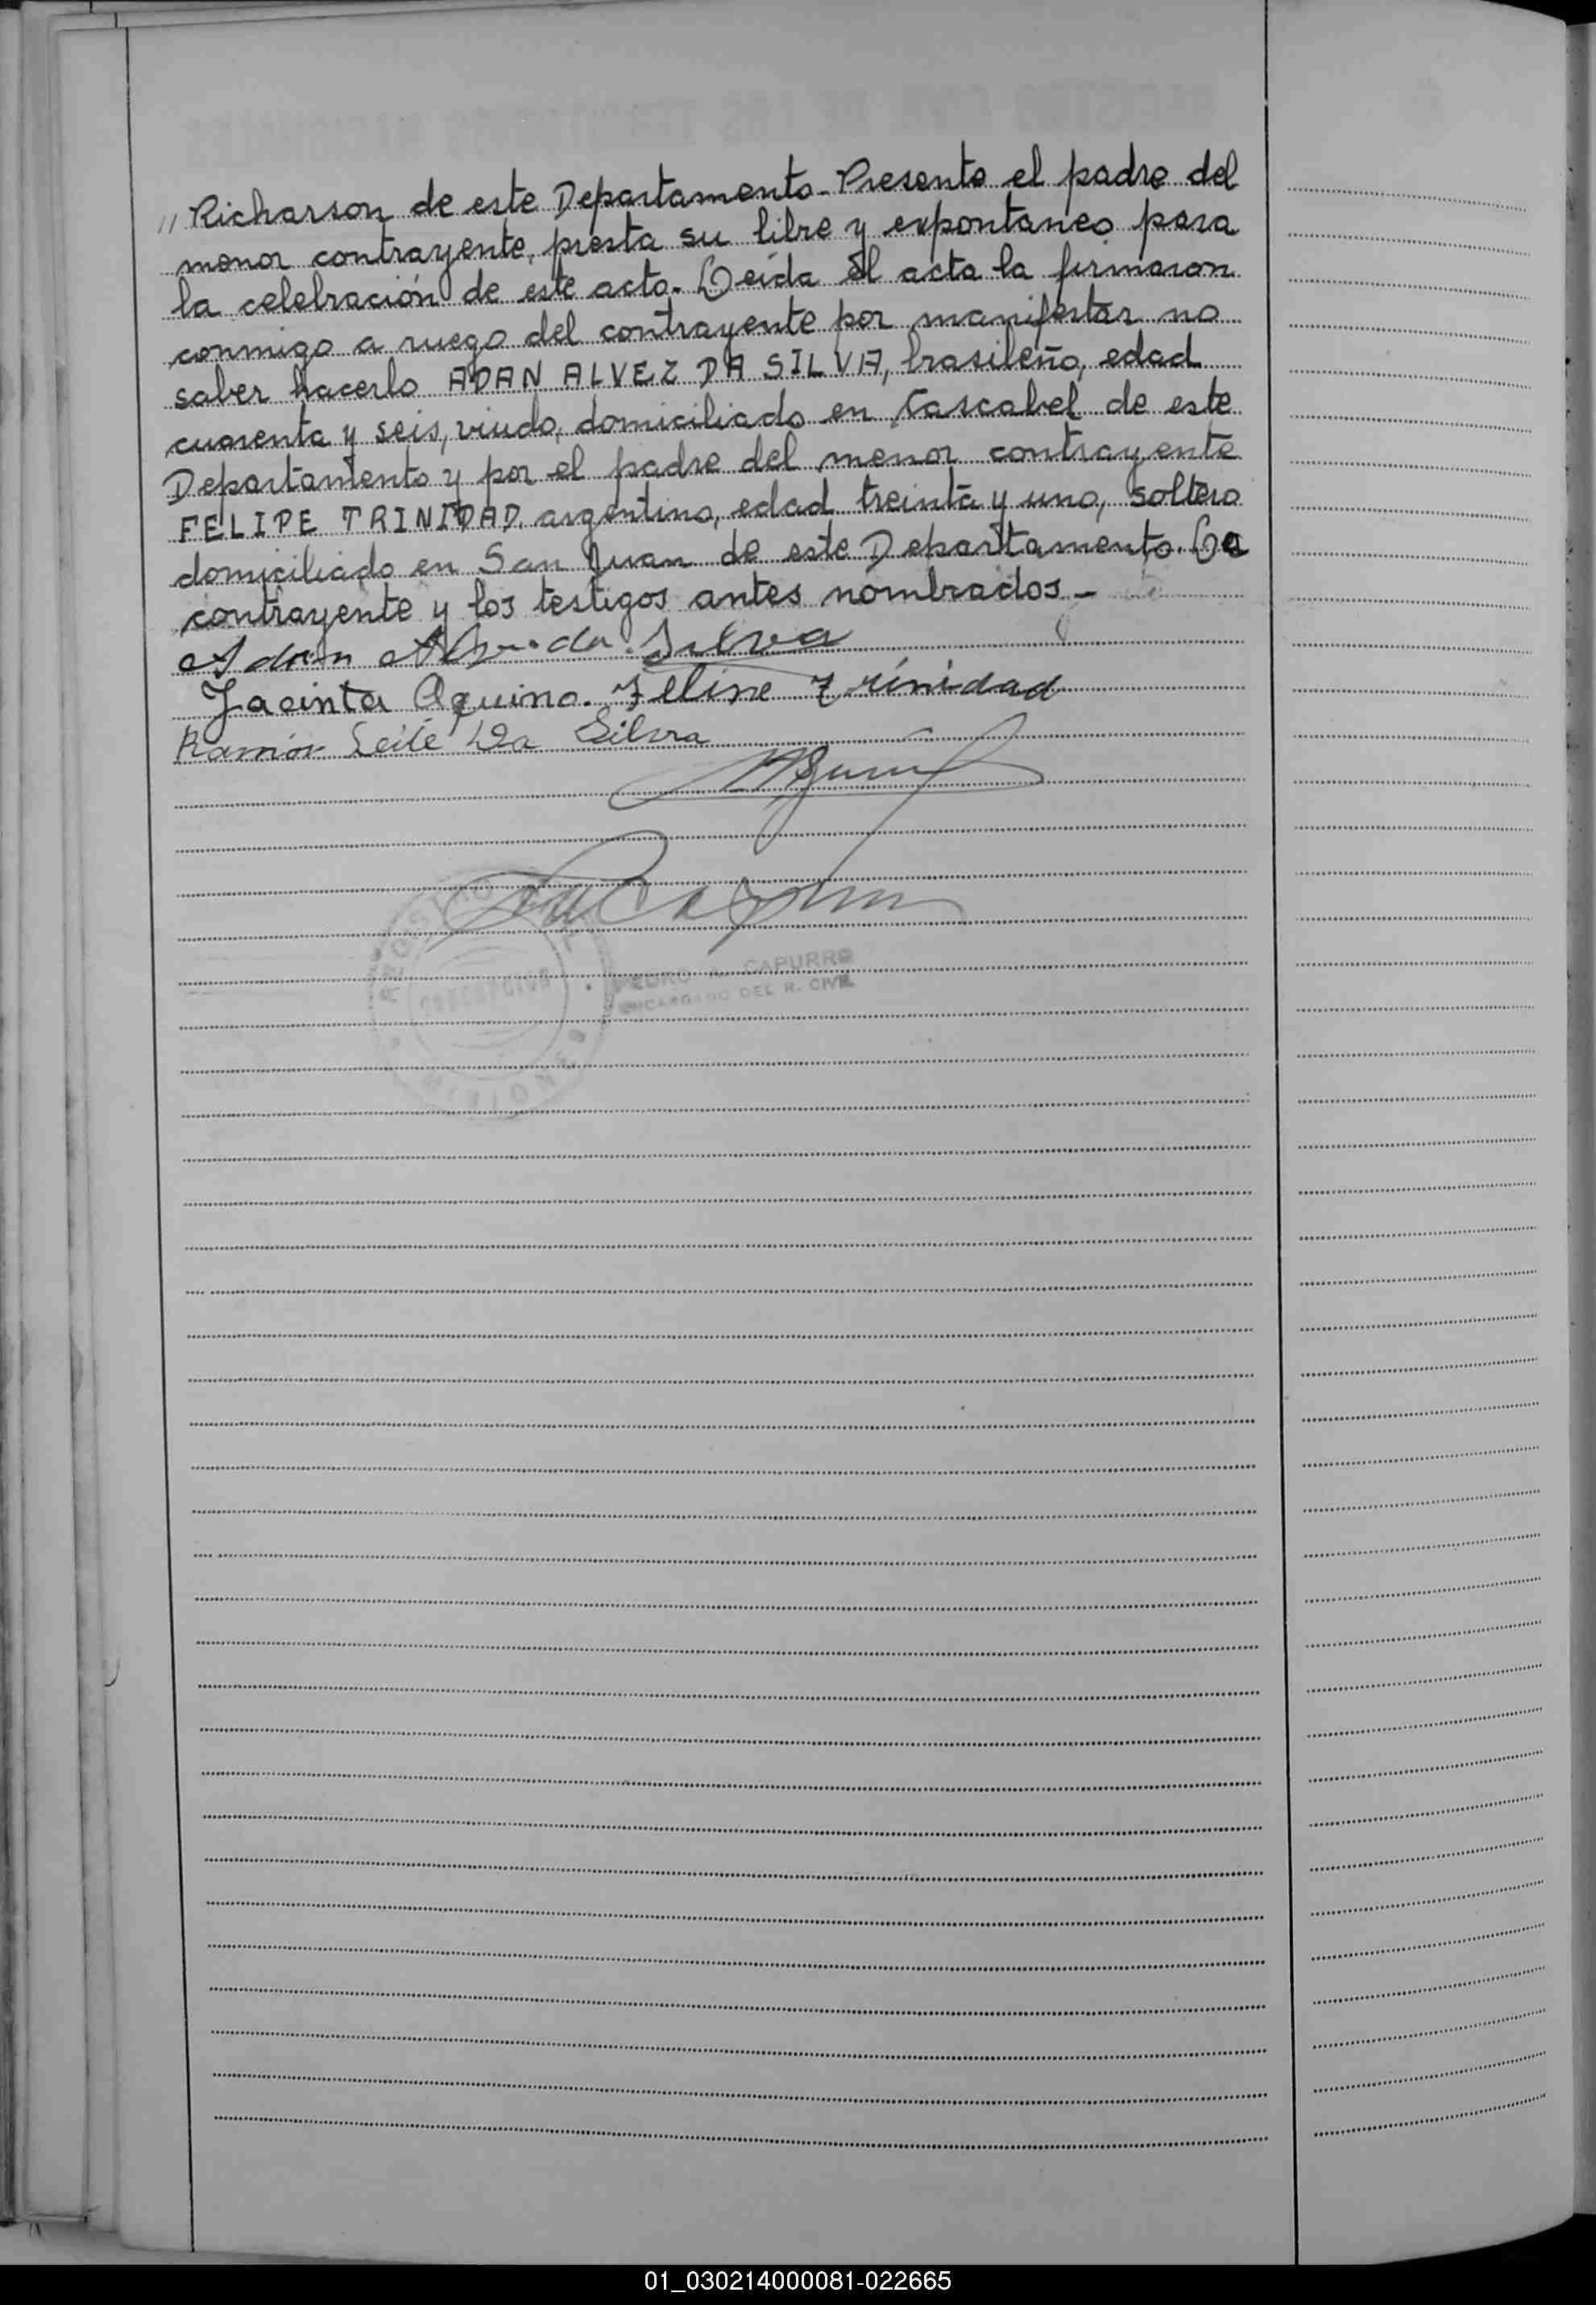 " Richarson de este Departamento. Presente el padre del
menor contrayente, presta su libre y expontaneo para
la celebración de este acto. Leída el acta la firmaron
conmigo a ruego del contrayente por manifestar no
saber hacerlo ADAN ALVEZ DA SILVA, brasileño, edad
cuarenta y seis, viudo, domiciliado en Cascabel de este
Departamento y por el padre del menor contrayente
FELIPE TRINIDAD, argentino, edad treinta y uno, soltero
domiciliado en San Juan de este Departamento. La
contrayente y los testigos antes nombrados -
Adan da Silva
Jacinta Aquino. Felipe Trinidad
Ramón Leite Da Silva
CONCEPCION
MISIONES
PEDRO A. CAPURRO
ENCARGADO DEL R. CIVIL
01_030214000081-022665